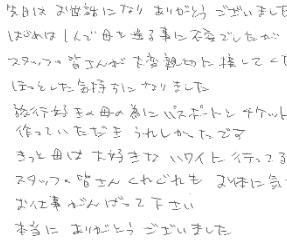 先日は お世話になり ありがとう ございました
はじめは 1人で 母を 送る事に 不安でしたが
スタッフの 皆さんが 大変 親切に 接して く
ほっとした 気持ちに なりました
旅行好きの母の為に パスポートと チケット
作っていただき うれしかったです
きっと 母は 大好きな ハワイに 行ってる
スタッフの 皆さん くれぐれも お体に 気
お仕事 がんばって 下さい
本当に ありがとう ございました